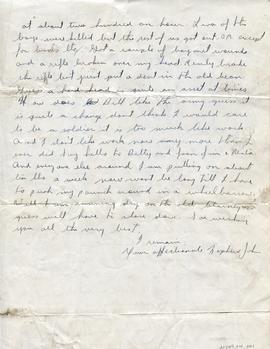 at about two hundred an hour. Two of the
boys were killed but the rest of us got out OK except
for being Got a couple of bayonet wounds
and a rifle broken over my head. Kinda broke
the rifle but just put a dent in the old bean
Guess a hard head is quite an asset at times
How does Bill like the army guess it
is quite a change dont think I would care
to be a soldier it is too much like work
And I dont like work now any more than I
ever did
And everyone else around. I am putting on about
ten lbs a week now wont be long till I have
to push my paunch around in a wheelbarrow.
Well I am running dry on the old
guess will have to close down. So wishing
you all the very best.
I remain
Your affectionate Brother John